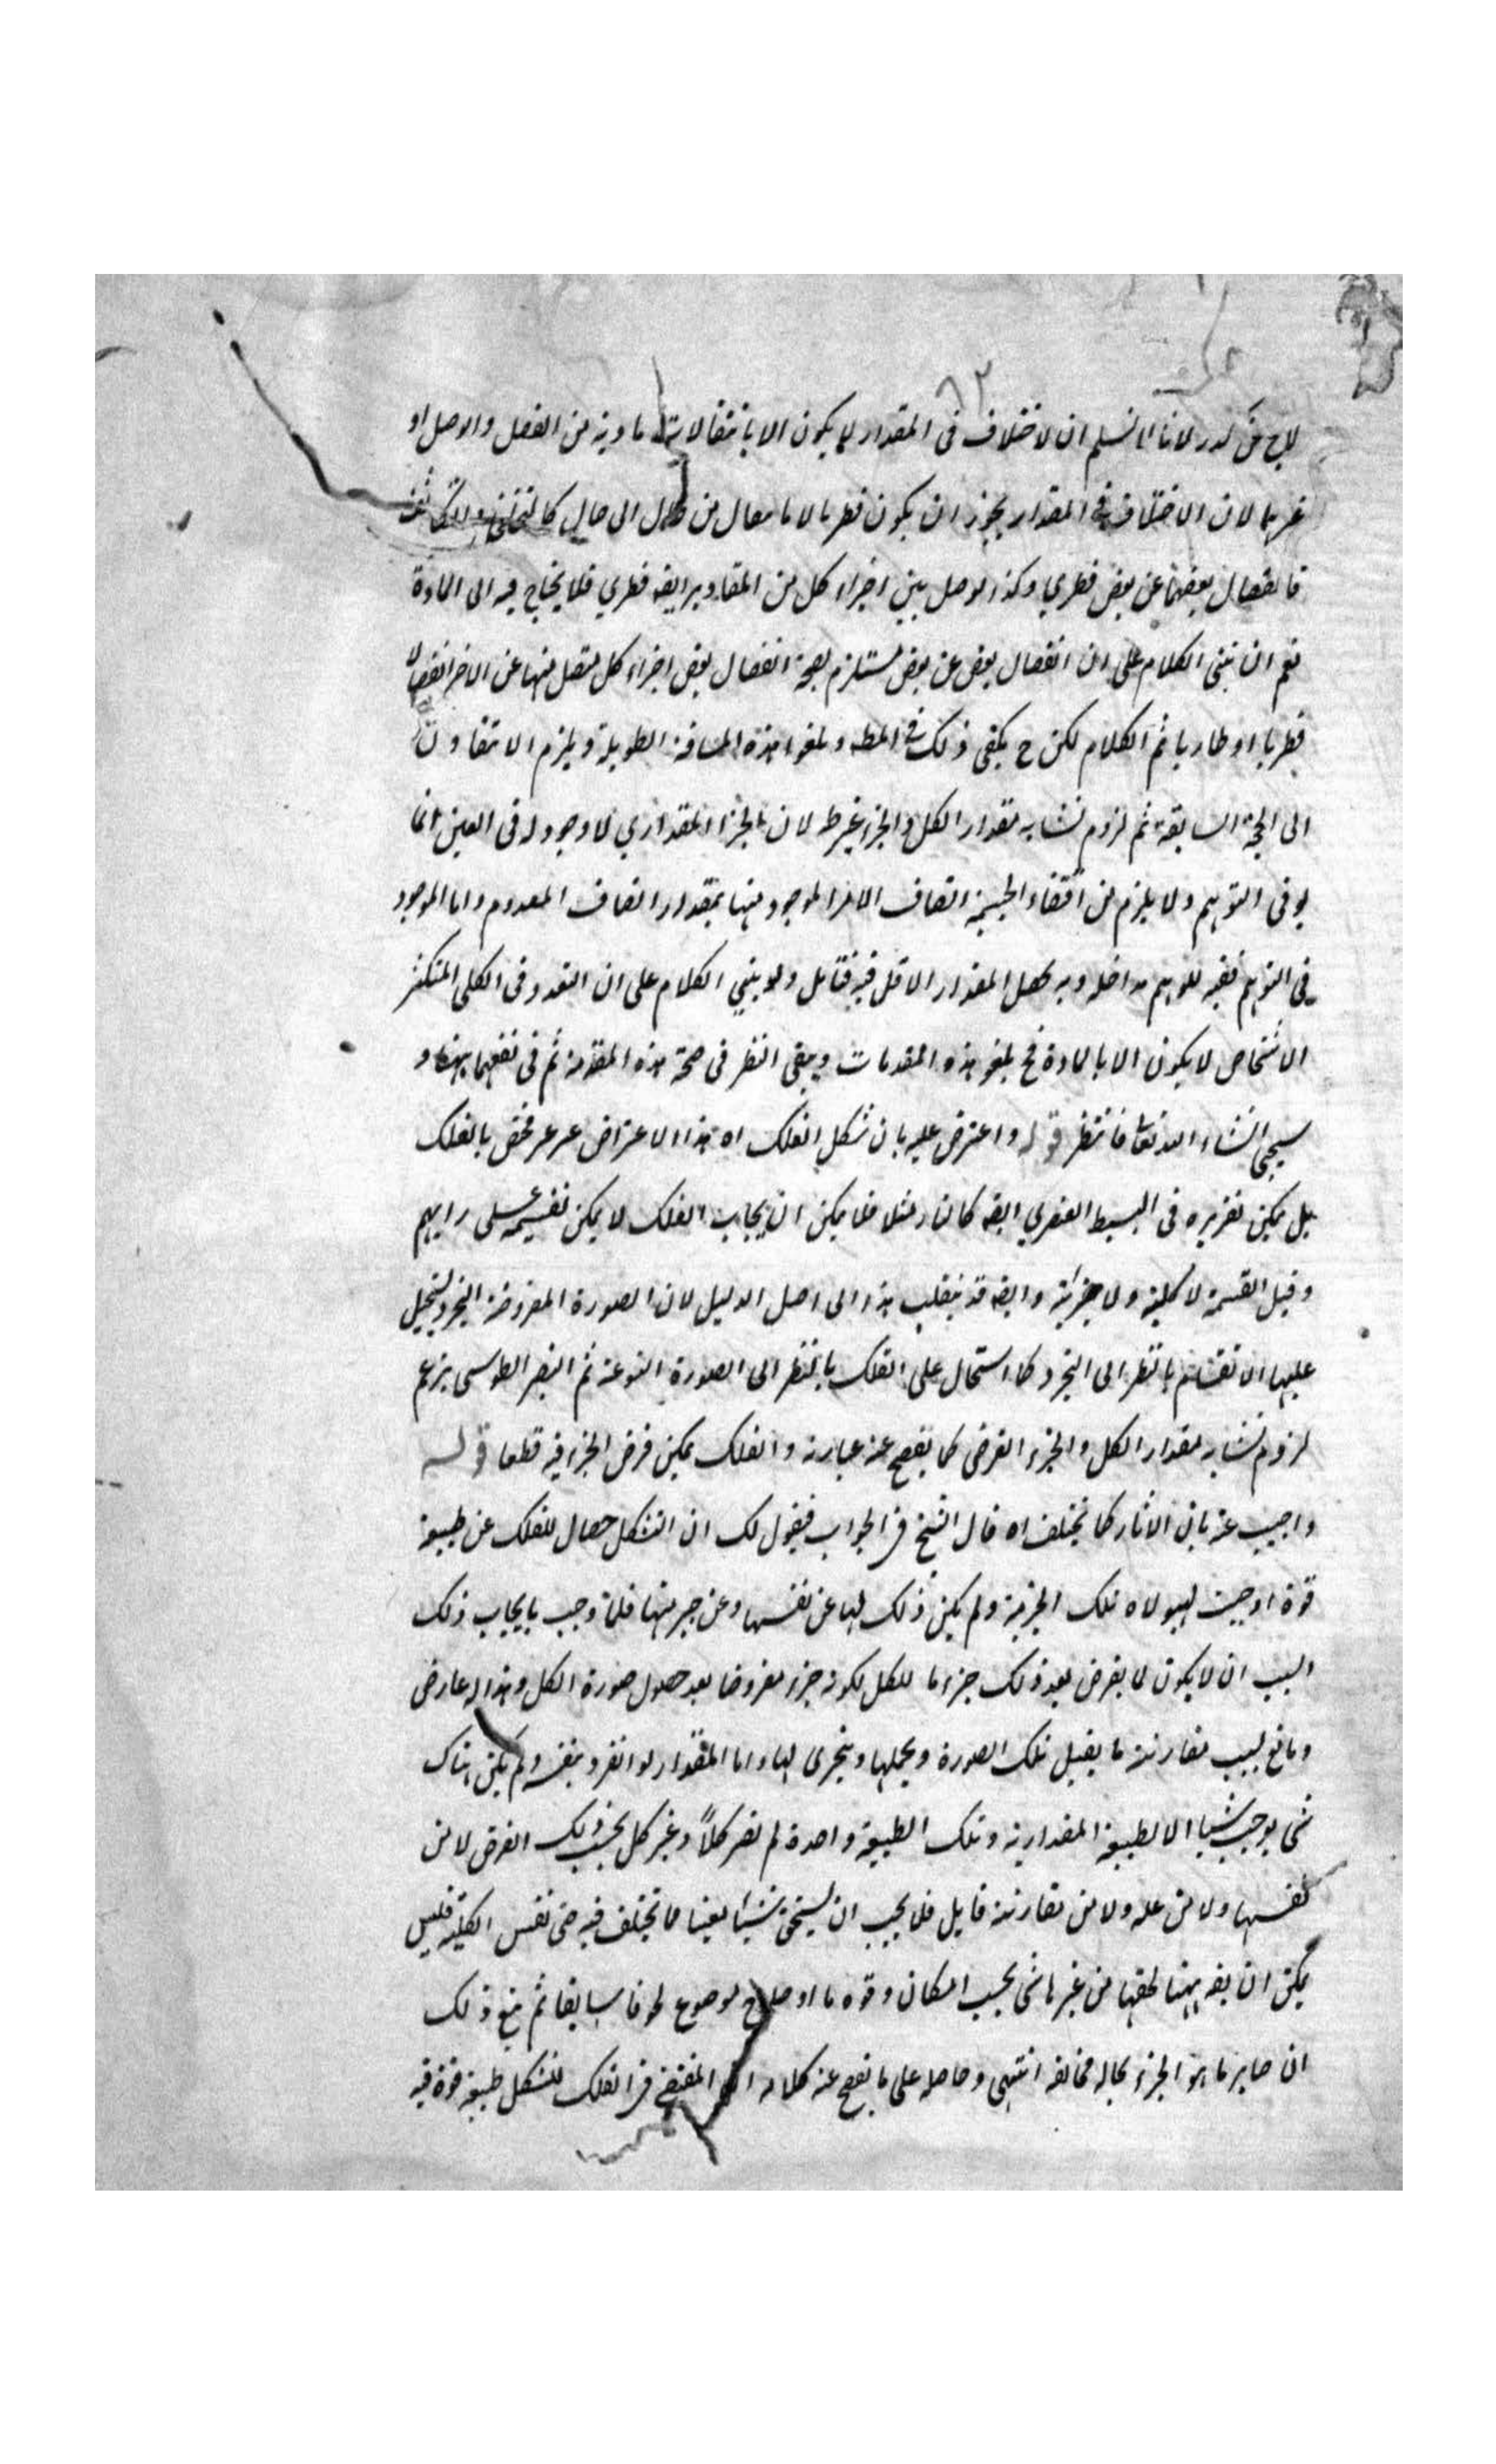 ٦٢
لا يخ عن كدر لانا لا نسلم ان الاختلاف فى المقدار لا يكون الا بانتقالات مادية من الفصل والوصل او
غيرهما لان الاختلاف فى المقدار يجوز ان يكون فطريا لا بانتقال من حال الى حال كالتخلخل والتكاثف
فانفصال بعضها عن بعض فطري وكذا الوصل بين اجزاء كل من المقادير ايضه فطري فلا يحتاج فيه الى المادة
نعم ان بنى الكلام على ان انفصال بعض عن بعض مستلزم لصحة انفصال بعض اجزاء كل متصل منها عن الاخر انفصالا
فطريا او طاريا ثم الكلام لكن ح يكفى ذلك فى المطلـ ويلغو هذه المسافة الطويلة ويلزم الا تفاوت
الى الحجة السابقة ثم لزوم تشابه مقدار الكل والجزء غير ط لان الجزء المقداري لا وجود له فى العين انما
هو فى التوهم ولا يلزم من اقتضاء الجسمية اتصاف الامر الموجود منها بمقدار اتصاف المعدوم واما الموجود
فى التوهم ففيه للوهم مداخلة وبه يحصل المقدار الاقل فيه فتامل ولو بنى الكلام على ان التعدد فى الكلى المتكثر
الاشخاص لا يكون الا بالمادة فح يلغو هذه المقدمات ويبقى النظر فى صحة هذه المقدمة ثم فى نفعها ههنا و
سيجئ انشاء الله تعا فانتظر قوله واعترض عليه بان شكل الفلك اه هذا الاعتراض غير مختص بالفلك
بل يمكن تقريره فى البسيط العنصري ايضه كالنار مثلا فلا يمكن ان يجاب الفلك لا يمكن تقسيمه على رايهم
وقبل القسمة لا كلية ولا جزئية وايضه قد ينقلب هذا الى اصل الدليل لان الصورة المفروضة التجرد يستحيل
عليها الانقسام بالنظر الى التجرد كما استحال على الفلك بالنظر الى الصورة النوعية ثم النصير الطوسى يزعم
لزوم تشابه مقدار الكل والجزء الفرضى كما يفصح عنه عبارته والفلك يمكن فرض الجزء فيه قطعا قوله
واجيب عنه بان الاثار كما تختلف اه قال الشيخ فى الجواب فيقول لك ان الشكل حصل للفلك عن طبيعة
قوة اوجبت لهيولاه تلك الجرمية ولم يكن ذلك لها عن نفسها وعن جرميتها فلما وجب بايجاب ذلك
السبب ان لا يكون لما يفرض بعد ذلك جزء ما للكل لكونه جزء مفروضا بعد حصول صورة الكل وهذا له عارض
ومانع بسبب مقارنة ما يقبل تلك الصورة ويحملها ويتجزى لها واما المقدار لو انفرد بنفسه ولم يكن هناك
شئ يوجب شيئا الا الطبيعة المقدارية وتلك الطبيعة واحدة لم تصر كلاً وغير كل بحسب ذلك الفرض لا من
نفسها ولا من علة ولا من مقارنة قابل فلا يجب ان يستحق شيئا معينا مما يختلف فيه حتى نفس الكلية فليس
يمكن ان يقـ ههنا لحقها من غير ما شئ بحسب امكان وقوة ما او صلاح موضوع لحوقا سابقا ثم منع ذلك
ان صاير ما هو الجزء بحاله مخالفه انتهى وحاصله على ما يفصح عنه كلامه ان المقتضى فى الفلك للشكل طبيعة قوة فيه